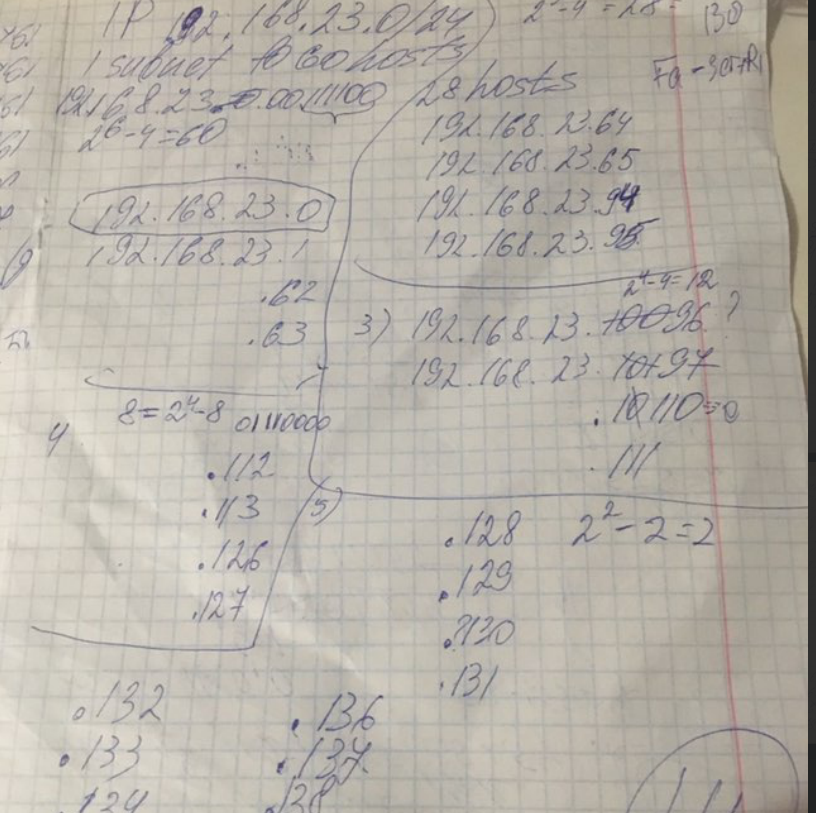 IP 192.168.23.0/24
1 subnet to 60 hosts
192.168.23.0.00111100
2^6-4=60
192.168.23.0
192.168.23.1
.62
.63
130
28 hosts
192.168.23.64
192.168.23.65
192.168.23.94
192.168.23.95
2^4-4=12
3) 192.168.23.10096 ?
192.168.23.10197
.110
.111
4
8=2^4-8 01110000
.112
.113
.126
.127
5)
.128 2^2-2=2
.129
.130
.131
.132
.133
.134
.136
.137
.138